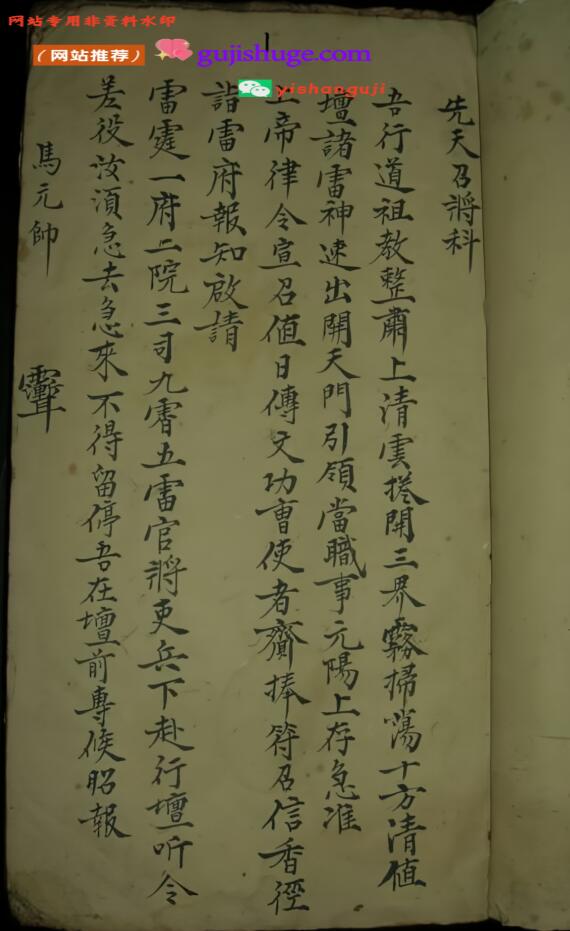 网站专用非资料水印
(网站推荐)
gujishuge.com
yishanguji
1
先天召將科
吾行道祖教整肅上清雲捲開三界霧掃蕩十方清值
壇諸雷神速出開天門引領當職事元陽上存急准
上帝律令宣召值日傳文功曹使者齎捧符召信香徑
詣雷府報知啟請
雷霆一府二院三司九霄五雷官將吏兵下赴行壇听令
差役汝須急去急來不得留停吾在壇前專候昭報
馬元帥